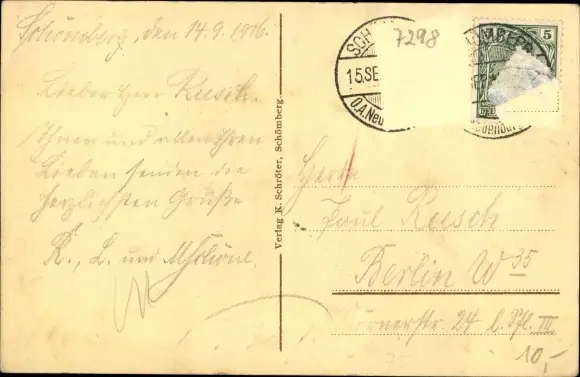 Schömberg, den 14.9.1916.
Lieber Herr Reesch.
Ihnen und allen Ihren
Lieben senden die
herzlichsten Grüße
K., L. und
Verlag K. Schröter, Schömberg.
7298
SCH
15 SE
O.A. Neu
5
Herrn
Paul Reesch
Berlin W 35
Körnerstr. 24 b. III
10,-